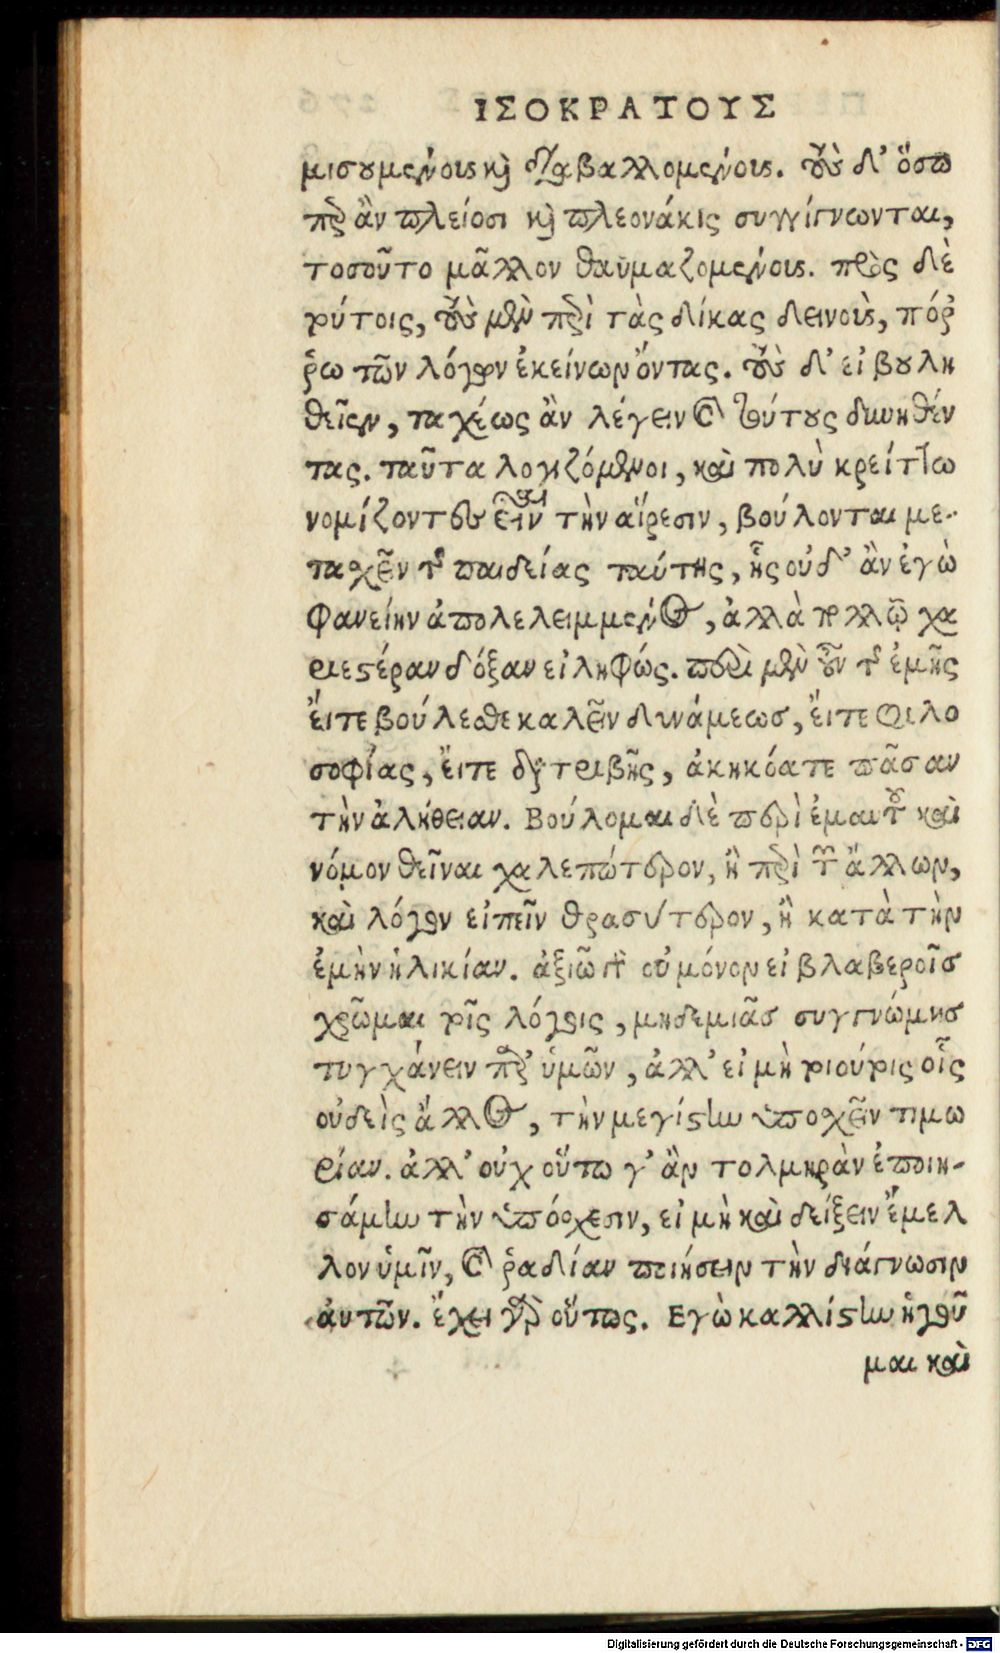 ΙΣΟΚΡΑΤΟΥΣ
μισουμένους καὶ διαβαλλομένους. τοὺς δ' ὅσῳ
περ ἂν πλείοσι καὶ πλεονάκις συγγίγνωνται,
τοσοῦτο μᾶλλον θαυμαζομένους. πρὸς δὲ
τούτοις, τοὺς μὲν περὶ τὰς δίκας δεινοὺς, πόρ
ῥω τῶν λόγων ἐκείνων ὄντας. τοὺς δ' εἰ βουλη
θεῖεν, ταχέως ἂν λέγειν καὶ τούτους δυνηθέν
τας. ταῦτα λογιζόμενοι, καὶ πολὺ κρείττω
νομίζοντες εἶναι τὴν αἵρεσιν, βούλονται με-
τασχεῖν τῆς παιδείας ταύτης, ἧς οὐδ' ἂν ἐγὼ
φανείην ἀπολελειμμένος, ἀλλὰ πολλῷ χα
ριεστέραν δόξαν εἰληφώς. περὶ μὲν οὖν τῆς ἐμῆς
εἴτε βούλεσθε καλεῖν δυνάμεως, εἴτε φιλο
σοφίας, εἴτε διατριβῆς, ἀκηκόατε πᾶσαν
τὴν ἀλήθειαν. Βούλομαι δὲ περὶ ἐμαυτοῦ καὶ
νόμον θεῖναι χαλεπώτερον, ἢ περὶ τῶν ἄλλων,
καὶ λόγον εἰπεῖν θρασύτερον, ἢ κατὰ τὴν
ἐμὴν ἡλικίαν. ἀξιῶ γὰρ οὐ μόνον εἰ βλαβεροῖς
χρῶμαι τοῖς λόγοις, μηδεμιᾶς συγγνώμης
τυγχάνειν παρ' ὑμῶν, ἀλλ' εἰ μὴ τοιούτοις οἷς
οὐδεὶς ἄλλος, τὴν μεγίστην ὑποσχεῖν τιμω
ρίαν. ἀλλ' οὐχ οὕτω γ' ἂν τολμηρὰν ἐποιη-
σάμην τὴν ὑπόσχεσιν, εἰ μὴ καὶ δείξειν ἔμελ
λον ὑμῖν, καὶ ῥαδίαν ποιήσειν τὴν διάγνωσιν
αὐτῶν. ἔχει γὰρ οὕτως. Εγὼ καλλίστην ἡγοῦ
μαι καὶ
Digitalisierung gefördert durch die Deutsche Forschungsgemeinschaft - DFG